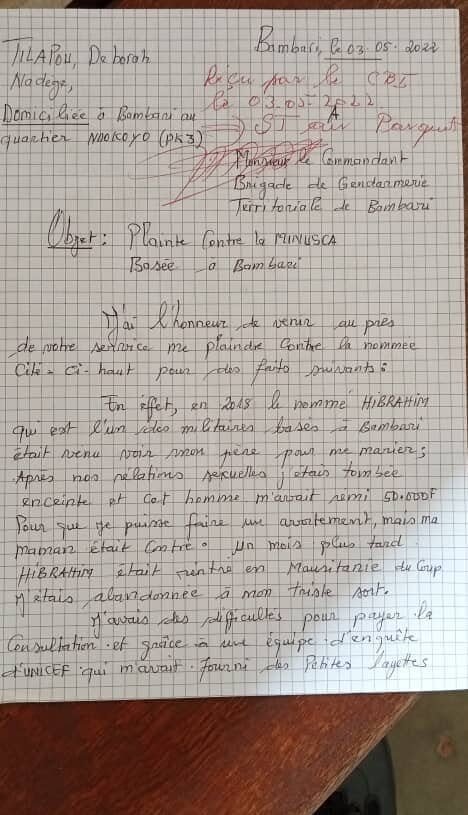 TILAPOU, Deborah
Nadège,
Domiciliée à Bambari au
quartier NDOKOYO (PK3)
Bambari, le 03.05.2022
Reçu par le CBT
le 03.05.2022
ST au Parquet
Monsieur le Commandant
Brigade de Gendarmerie
Territoriale de Bambari
Objet: Plainte Contre la MINUSCA
Basée à Bambari
J'ai l'honneur de venir au près
de votre service me plaindre Contre la nommée
Cité-ci-haut pour des faits suivants:
En effet, en 2018 le nommé HIBRAHIM
qui est l'un des militaires basés à Bambari
était venu voir mon père pour me marier;
Après nos relations sexuelles j'étais tombée
enceinte et cet homme m'avait remi 50.000F
Pour que je puisse faire un avortement, mais ma
maman était contre. Un mois plus tard
HIBRAHIM était rentré en Mauritanie du Coup
j'étais abandonnée à mon triste sort.
J'avais des difficultés pour payer la
Consultation et grâce à une équipe d'enquête
d'UNICEF qui m'avait fourni des Petites layettes